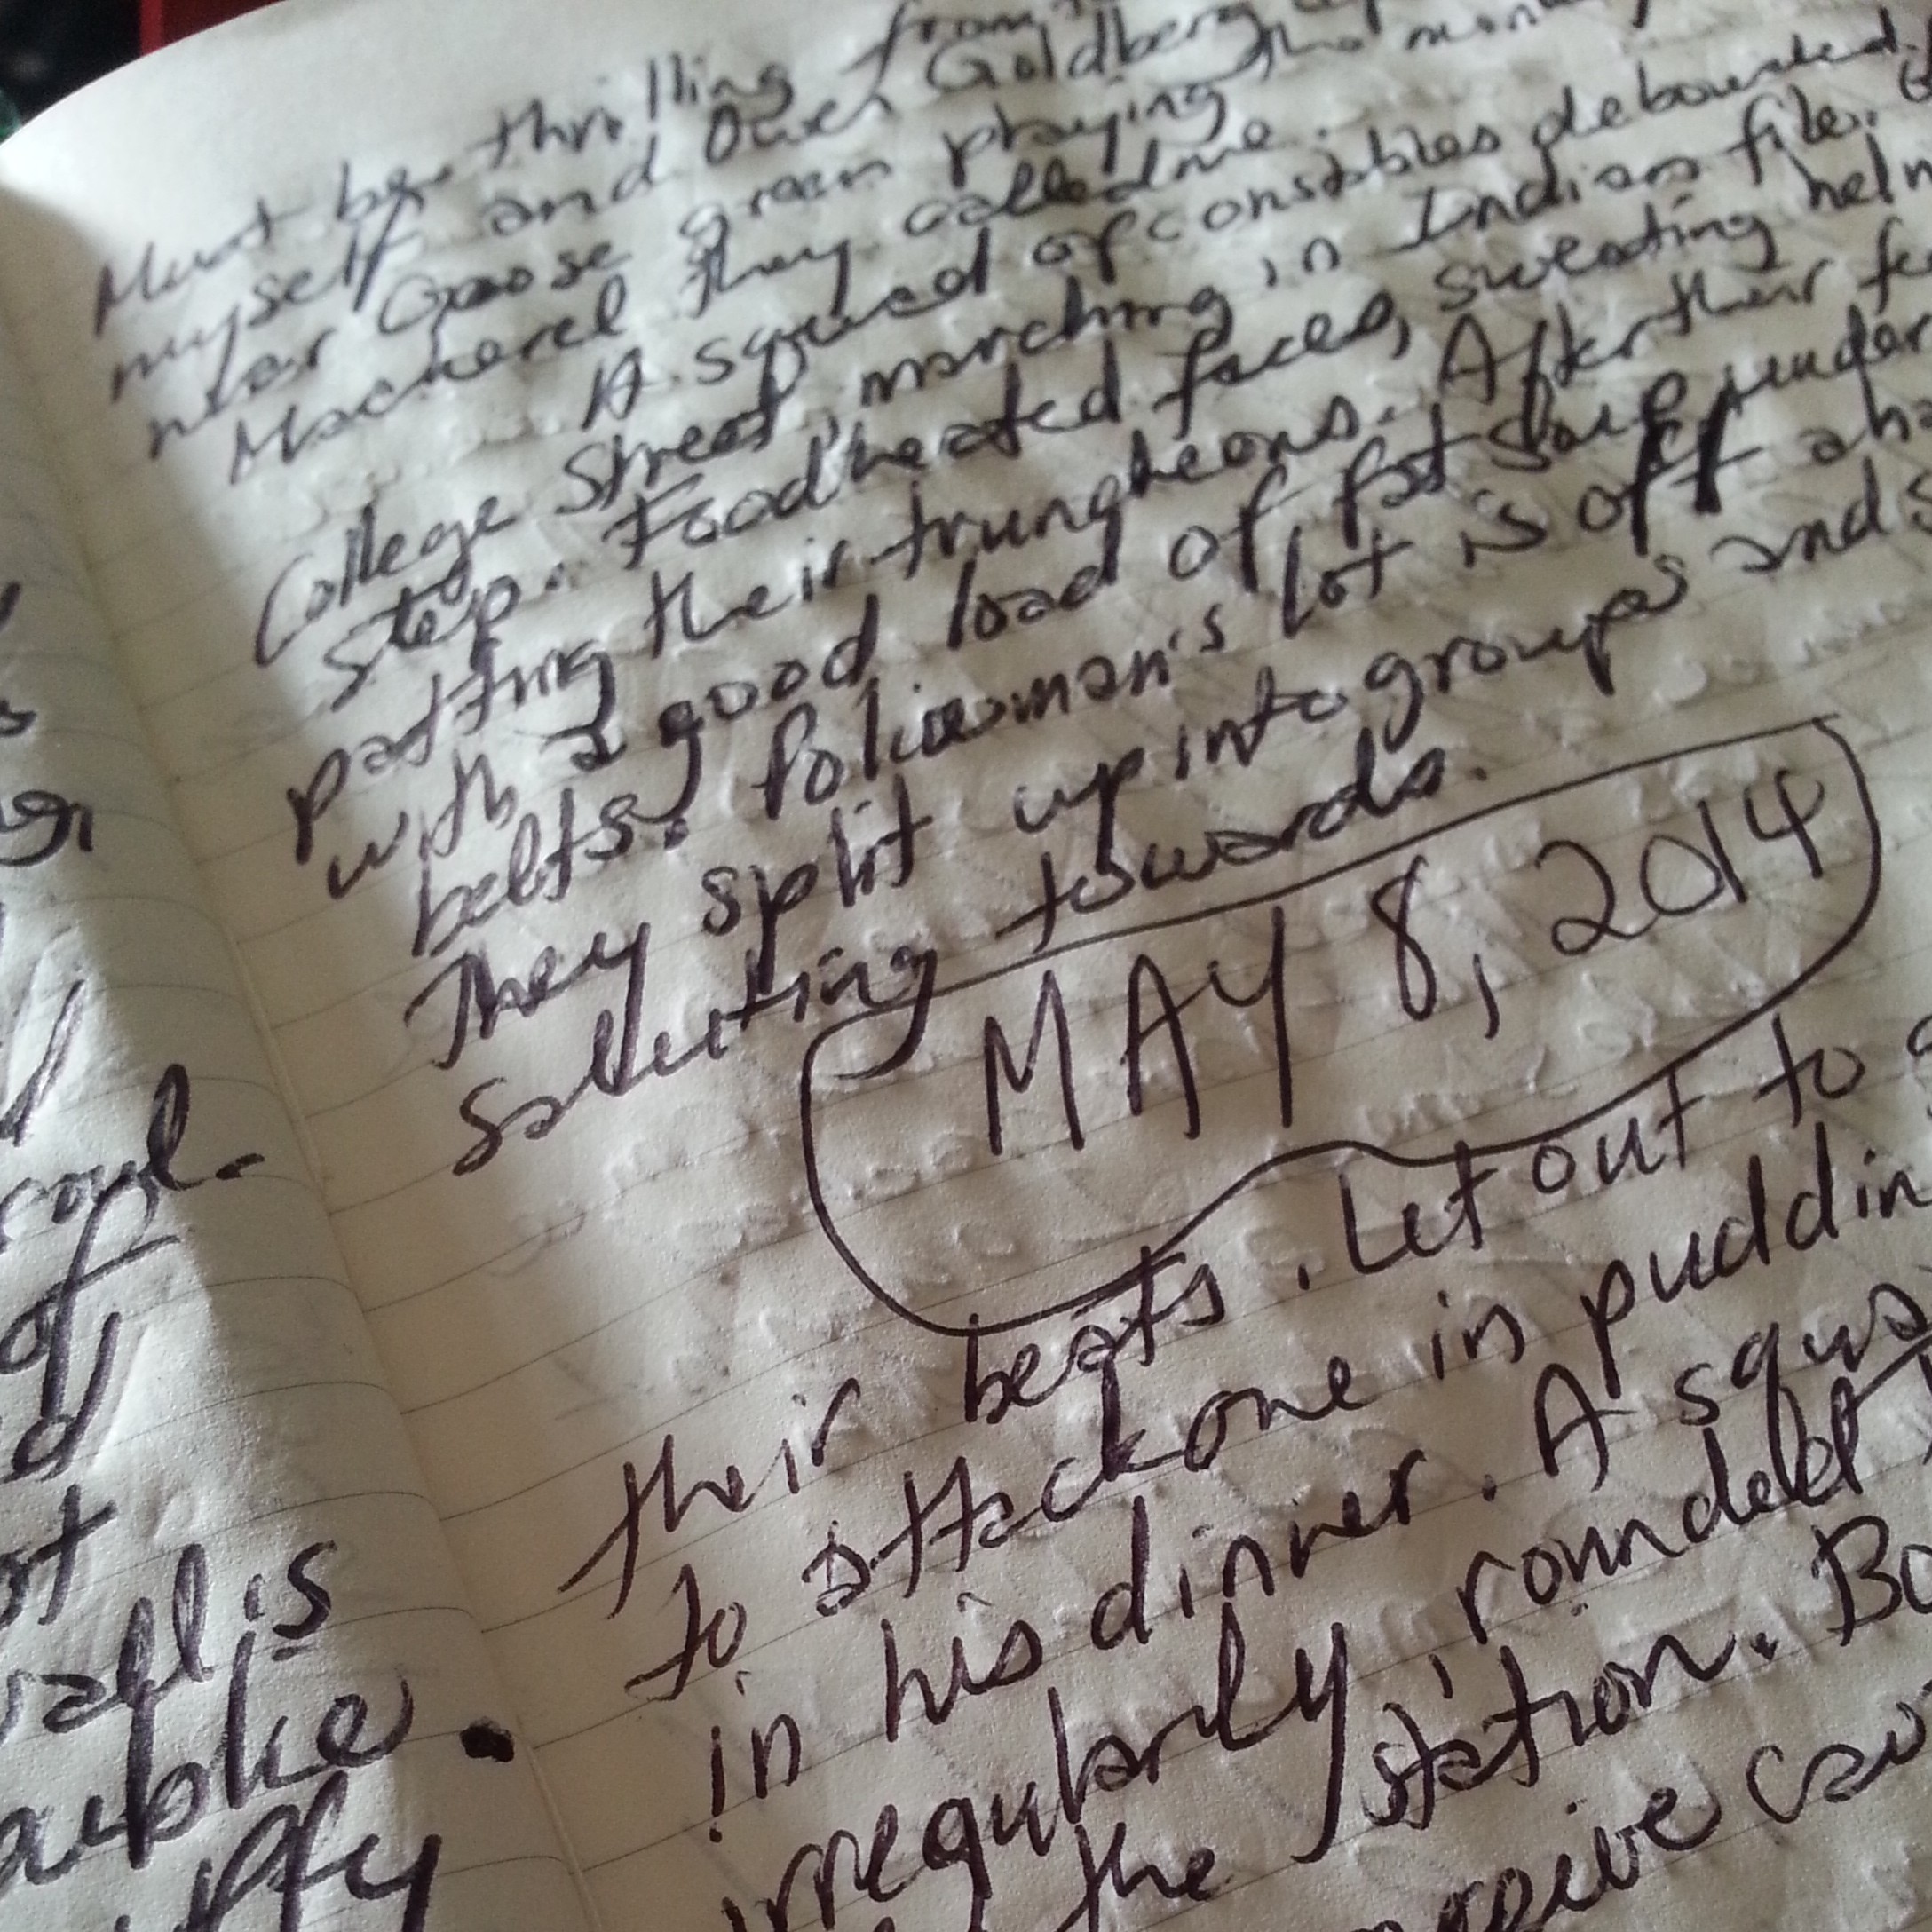 Must be thrilling from
myself and Owen Goldberg
near Goose green playing the mon
Mackerel they called me.
A squad of constables debouched
College Street, marching in Indian file.
step. Foodheated faces, sweating helm
patting their truncheons. After their fe
with a good load of fat soup under
belts. Policeman's lot is oft a ha
They split up into groups and s
saluting towards.
MAY 8, 2014
their beats. Let out to
to attack one in puddin
in his dinner. A squa
irregularly rounded
the station. Bo
coul-
of
d
ot
all is
ublic.
ffy